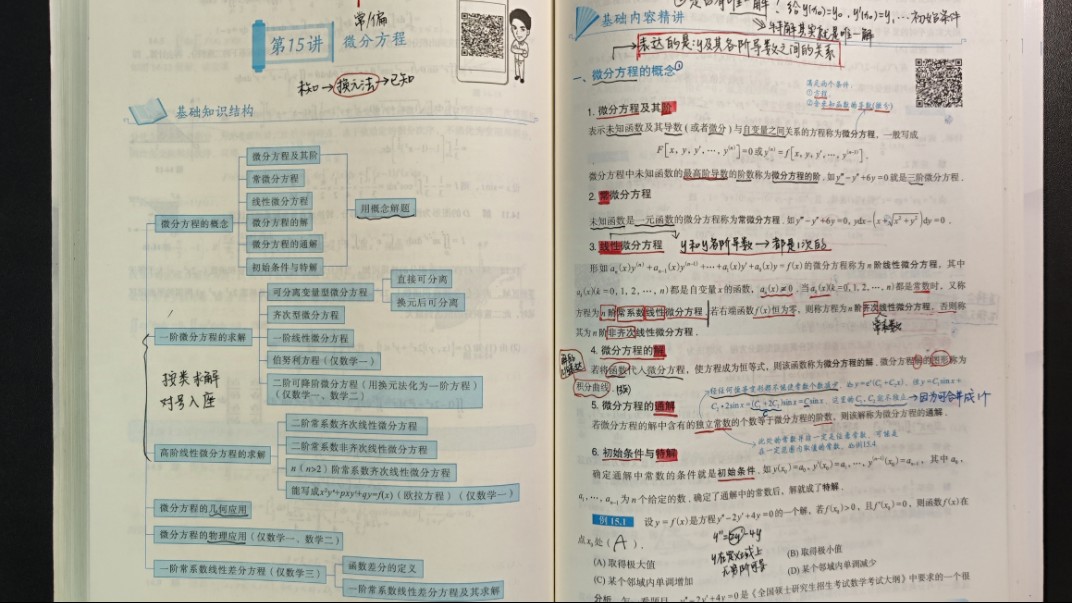 第15讲
常/偏
微分方程
未知→换元法→已知
基础知识结构
微分方程的概念
微分方程及其阶
常微分方程
线性微分方程
微分方程的解
微分方程的通解
初始条件与特解
用概念解题
一阶微分方程的求解
可分离变量型微分方程
直接可分离
换元后可分离
齐次型微分方程
一阶线性微分方程
伯努利方程(仅数学一)
二阶可降阶微分方程(用换元法化为一阶方程)
(仅数学一、数学二)
按类求解
对号入座
高阶线性微分方程的求解
二阶常系数齐次线性微分方程
二阶常系数非齐次线性微分方程
n(n>2)阶常系数齐次线性微分方程
能写成x²y''+pxy'+qy=f(x)(欧拉方程)(仅数学一)
微分方程的几何应用
微分方程的物理应用(仅数学一、数学二)
一阶常系数线性差分方程(仅数学三)
函数差分的定义
一阶常系数线性差分方程及其求解
解?给y(x₀)=y₀,y'(x₀)=y₁…初始条件
特解其实就是唯一解
基础内容精讲
表达的是y及其各阶导数之间的关系
一、微分方程的概念①
满足两个条件:
①方程.
②含未知函数的导数(微分)
1. 微分方程及其阶
表示未知函数及其导数(或者微分)与自变量之间关系的方程称为微分方程,一般写成
F[x, y, y', …, y⁽ⁿ⁾]=0或y⁽ⁿ⁾=f[x, y, y', …, y⁽ⁿ⁻¹⁾].
微分方程中未知函数的最高阶导数的阶数称为微分方程的阶.如y'''-y''+6y=0就是三阶微分方程.
2. 常微分方程
未知函数是一元函数的微分方程称为常微分方程.如y'''-y''+6y=0, ydx-(x+√x²+y²)dy=0.
3. 线性微分方程 y和y各阶导数→都是1次的
形如aₙ(x)y⁽ⁿ⁾+aₙ₋₁(x)y⁽ⁿ⁻¹⁾+…+a₁(x)y'+a₀(x)y=f(x)的微分方程称为n阶线性微分方程,其中
aₖ(x)(k=0, 1, 2, …, n)都是自变量x的函数,aₙ(x)≢0.当aₖ(x)(k=0, 1, 2, …, n)都是常数时,又称
方程为n阶常系数线性微分方程.若右端函数f(x)恒为零,则称方程为n阶齐次线性微分方程,否则称
其为n阶非齐次线性微分方程.
4. 微分方程的解
若将函数代入微分方程,使方程成为恒等式,则该函数称为微分方程的解.微分方程解的图形称为
积分曲线.
5. 微分方程的通解
C₁·2sinx=(C₁+2C₂)sinx=Csinx. 这里的C₁, C₂就不独立→因为可合并成1个
若微分方程的解中含有的独立常数的个数等于微分方程的阶数,则该解称为微分方程的通解.
在一定范围内取值的常数.如例15.4
6. 初始条件与特解
确定通解中常数的条件就是初始条件.如y(x₀)=a₀, y'(x₀)=a₁, …, y⁽ⁿ⁻¹⁾(x₀)=aₙ₋₁,其中a₀,
a₁, …, aₙ₋₁为n个给定的数.确定了通解中的常数后,解就成了特解.
例15.1 设y=f(x)是方程y''-2y'+4y=0的一个解,若f(x₀)>0,且f'(x₀)=0,则函数f(x)在
点x₀处( A ).
y''=2y'-4y
(A) 取得极大值
(B) 取得极小值
(C) 某个邻域内单调增加
(D) 某个邻域内单调减少
y''-2y'+4y=0是《全国硕士研究生招生考试数学考试大纲》中要求的一个很